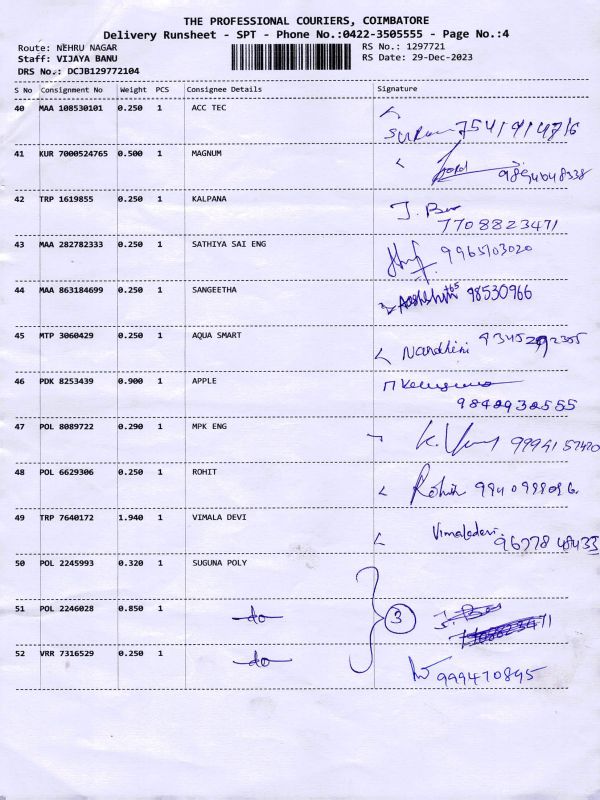 THE PROFESSIONAL COURIERS, COIMBATORE
Delivery Runsheet - SPT - Phone No.:0422-3505555 - Page No.:4
Route: NEHRU NAGAR RS No.: 1297721
Staff: VIJAYA BANU RS Date: 29-Dec-2023
DRS No.: DCJB129772104
S No Consignment No Weight PCS Consignee Details Signature
40 MAA 108530101 0.250 1 ACC TEC
41 KUR 7000524765 0.500 1 MAGNUM
42 TRP 1619855 0.250 1 KALPANA J. Bas
7708823471
43 MAA 282782333 0.250 1 SATHIYA SAI ENG 9965703020
44 MAA 863184699 0.250 1 SANGEETHA 98530966
45 MTP 3060429 0.250 1 AQUA SMART Nandhini
46 PDK 8253439 0.900 1 APPLE
9842932555
47 POL 8089722 0.290 1 MPK ENG
48 POL 6629306 0.250 1 ROHIT Rohin
49 TRP 7640172 1.940 1 VIMALA DEVI Vimaladevi
50 POL 2245993 0.320 1 SUGUNA POLY
51 POL 2246028 0.850 1 do 3
52 VRR 7316529 0.250 1 do 999470895